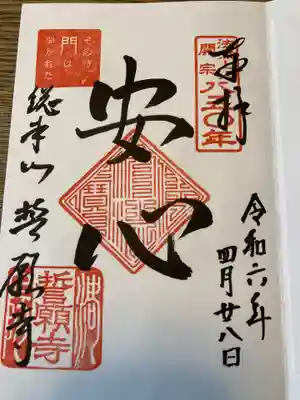 奉拝
開宗八五〇年
令和六年
四月廿八日
安心
その時、
門は
開かれた
総本山誓願寺
誓願寺